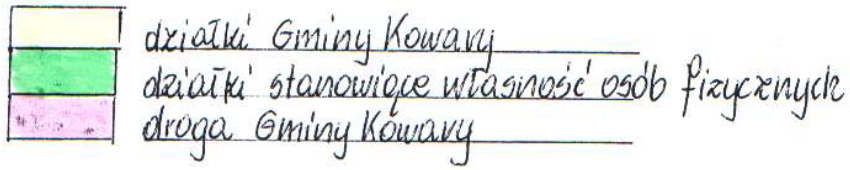 działki Gminy Kowary
działki stanowiące własność osób fizycznych
droga Gminy Kowary